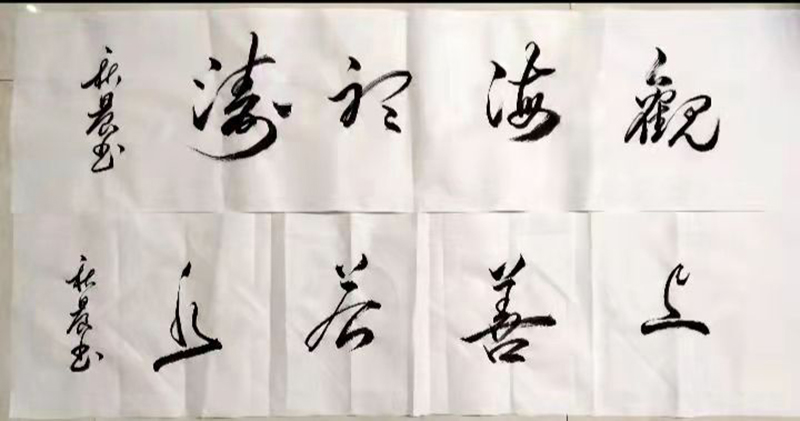 觀海聽濤 秋晨书
上善若水 秋晨书